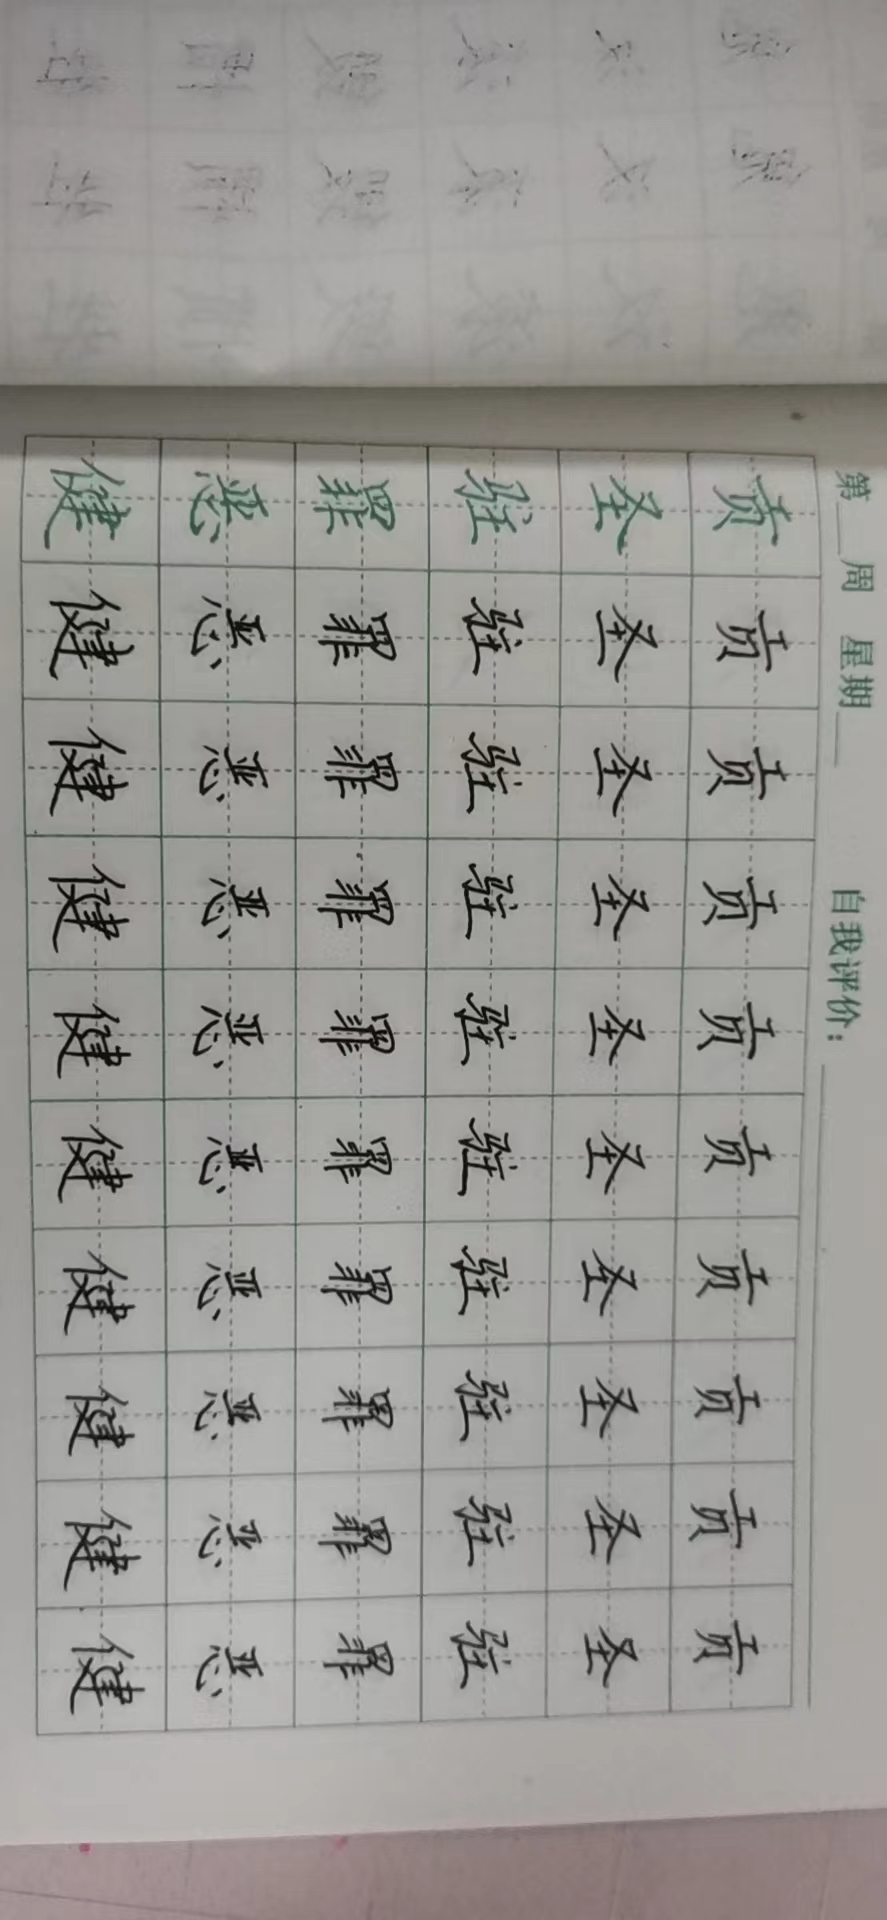 第__周 星期__ 自我评价：
贡贡贡贡贡贡贡贡贡贡
圣圣圣圣圣圣圣圣圣圣
驻驻驻驻驻驻驻驻驻驻
罪罪罪罪罪罪罪罪罪罪
恶恶恶恶恶恶恶恶恶恶
健健健健健健健健健健